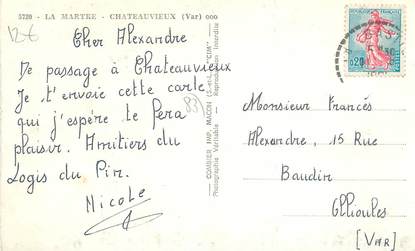 5720 - LA MARTRE - CHATEAUVIEUX (Var) 000
12€
Cher Alexandre
De passage à Chateauvieux
Je t'envoie cette carte
qui j'espère te fera
plaisir. Amitiers du
Logis du Pin.
Nicole
83
COMBIER IMP. MACON (S.-et-L.) "CIM"
Photographie Véritable - Reproduction Interdite
0,20
Monsieur Francés
Alexandre, 15 Rue
Baudin
Ollioules
[VAR]